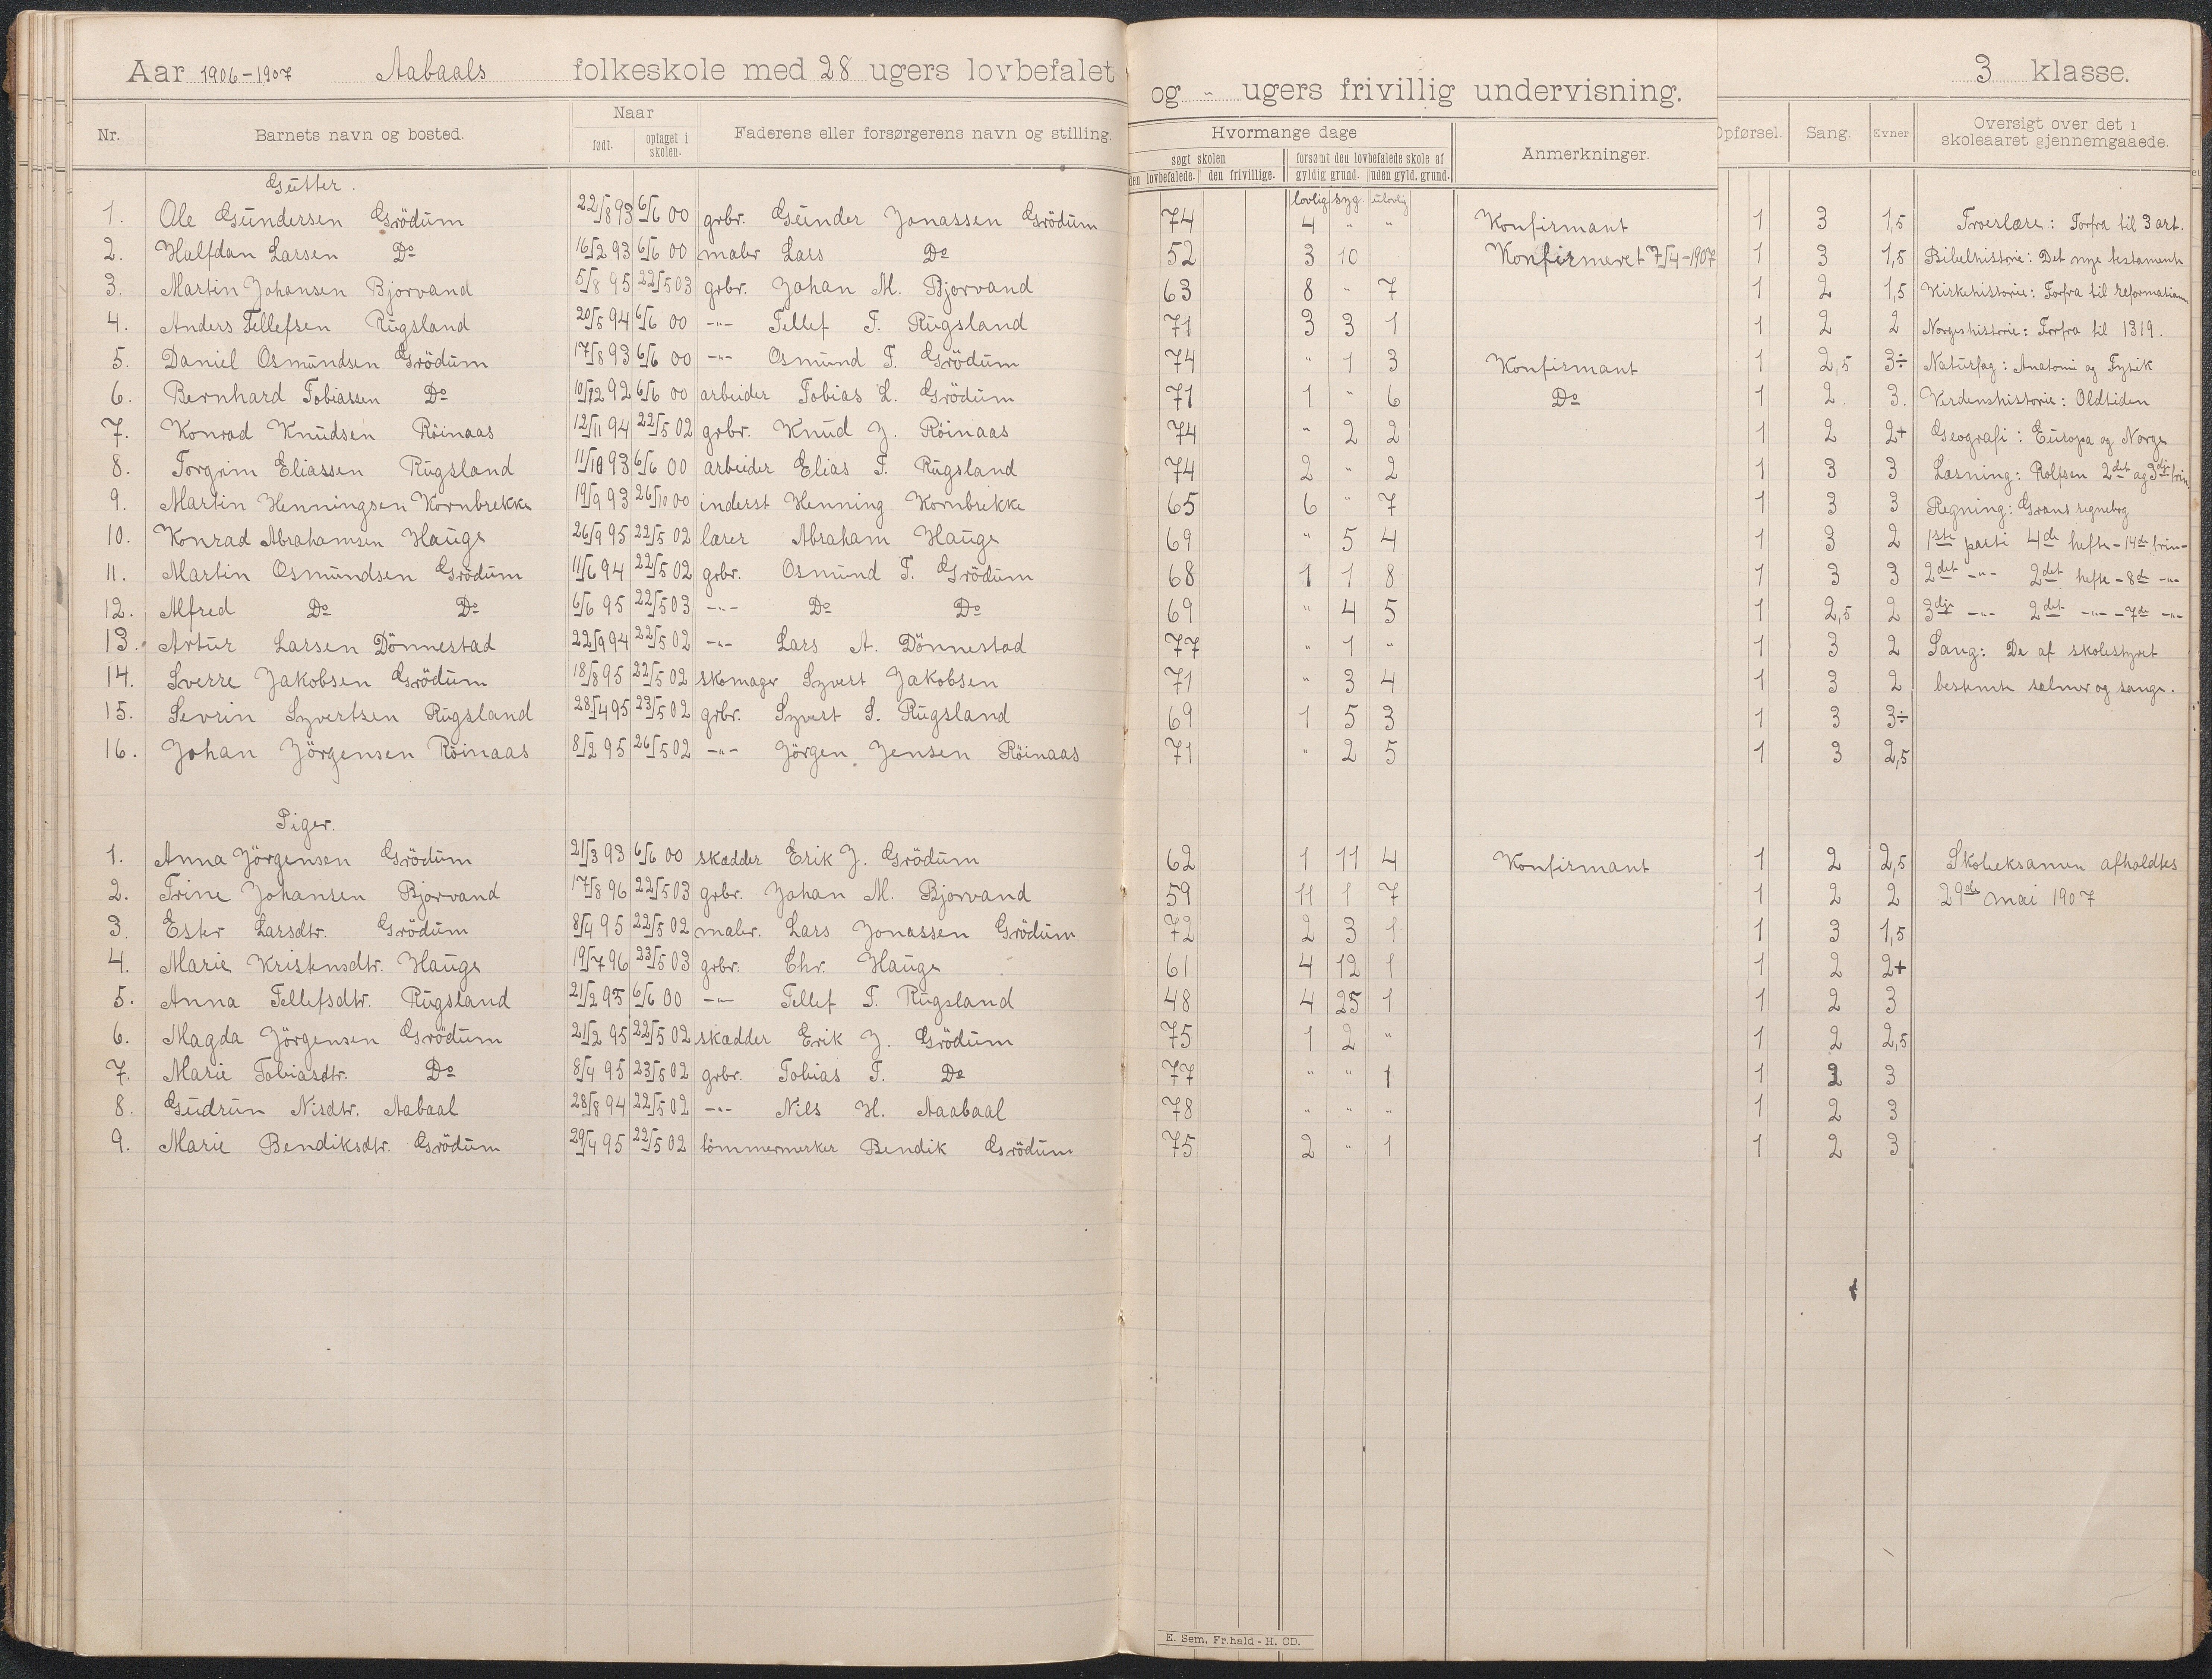 Aar 1906-1907 Aabaals folkeskole med 28 ugers lovbefalet og " ugers frivillig undervisning. 3 klasse.
Nr. Barnets navn og bosted. Naar født. optaget i skolen. Faderens eller forsørgerens navn og stilling. Hvormange dage Anmerkninger. Opførsel. Sang. Evner Oversigt over det i skoleaaret gjennemgaaede.
søgt skolen forsømt den lovbefalede skole af
den lovbefalede. den frivillige. gyldig grund. uden gyld. grund.
Gutter. lovlig syg. ulovlig
1. Ole Gundersen Grödum 22/8 93 6/6 00 grbr. Gunder Jonassen Grödum 74 4 " " Konfirmant 1 3 1,5 Troeslære: Forfra til 3 art.
2. Halfdan Larsen Do 16/2 93 6/6 00 maler Lars Do 52 3 10 Konfirmeret 7/4-1907 1 3 1,5 Bibelhistorie: Det nye testamente
3. Martin Johansen Bjorvand 5/8 95 22/5 03 grbr. Johan M. Bjorvand 63 8 " 7 1 2 1,5 Kirkehistorie: Forfra til reformationen
4. Anders Tellefsen Rugsland 20/5 94 6/6 00 -"- Tellef T. Rugsland 71 3 3 1 1 2 2 Norgeshistorie: Forfra til 1319.
5. Daniel Osmundsen Grödum 17/8 93 6/6 00 -"- Osmund T. Grödum 74 " 1 3 Konfirmant 1 2,5 3÷ Naturfag: Anatomi og Fysik
6. Bernhard Tobiassen Do 10/12 92 6/6 00 arbeider Tobias L. Grödum 71 1 " 6 Do 1 2 3. Verdenshistorie: Oldtiden
7. Konrad Knudsen Röinaas 12/11 94 22/5 02 grbr. Knud J. Röinaas 74 " 2 2 1 2 2+ Geografi: Europa og Norge
8. Torgrim Eliassen Rugsland 11/10 93 6/6 00 arbeider Elias T. Rugsland 74 2 " 2 1 3 3 Læsning: Rolfsen 2det og 3dje trin.
9. Martin Henningsen Kornbrekke 19/9 93 26/10 00 inderst Henning Kornbrekke 65 6 " 7 1 3 3 Regning: Grans regnebog
10. Konrad Abrahamsen Hauge 26/9 95 22/5 02 lærer Abraham Hauge 69 " 5 4 1 3 2 1ste parti 4de hefte - 14de trin-
11. Martin Osmundsen Grödum 11/6 94 22/5 02 grbr. Osmund T. Grödum 68 1 1 8 1 3 3 2det -"- 2det hefte - 8de -"-
12. Alfred Do Do 6/6 95 22/5 03 -"- Do Do 69 " 4 5 1 2,5 2 3dje -"- 2det -"- - 7de -"-
13. Artur Larsen Dönnestad 22/9 94 22/5 02 -"- Lars A. Dönnestad 77 " 1 " 1 3 2 Sang: De af skolestyret
14. Sverre Jakobsen Grödum 18/8 95 22/5 02 skomager Syvert Jakobsen 71 " 3 4 1 3 2 bestemte salmer og sange.
15. Sevrin Syvertsen Rugsland 28/4 95 23/5 02 grbr. Syvert S. Rugsland 69 1 5 3 1 3 3÷
16. Johan Jörgensen Röinaas 8/2 95 26/5 02 -"- Jörgen Jensen Röinaas 71 " 2 5 1 3 2,5
Piger.
1. Anna Jörgensen Grödum 21/3 93 6/6 00 skædder Erik J. Grödum 62 1 11 4 Konfirmant 1 2 2,5 Skoleeksamen afholdtes
2. Trine Johansen Bjorvand 17/8 96 22/5 03 grbr. Johan M. Bjorvand 59 11 1 7 1 2 2 29de mai 1907
3. Ester Larsdtr. Grödum 8/4 95 22/5 02 maler. Lars Jonassen Grödum 72 2 3 1 1 3 1,5
4. Marie Kristensdtr. Hauge 19/7 96 23/5 03 grbr. Chr. Hauge 61 4 12 1 1 2 2+
5. Anna Tellefsdtr. Rugsland 21/2 93 6/6 00 -"- Tellef T. Rugsland 48 4 25 1 1 2 3
6. Magda Jörgensen Grödum 21/2 95 22/5 02 skædder Erik J. Grödum 75 1 2 " 1 2 2,5
7. Marie Tobiasdtr. Do 8/4 95 23/5 02 grbr. Tobias T. Do 77 " " 1 1 2 3
8. Gudrun Nisdtr. Aabaal 28/8 94 22/5 02 -"- Nils H. Aaabaal 78 " " " 1 2 3
9. Marie Bendiksdtr. Grödum 29/4 95 22/5 02 tömmermerker Bendik Grödum 75 2 " 1 1 2 3
E. Sem, Fr.hald - H. CD.